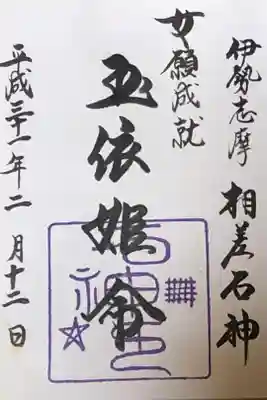 伊勢志摩 相差石神
女願成就
玉依姫命
平成三十一年二月十二日
石神さん